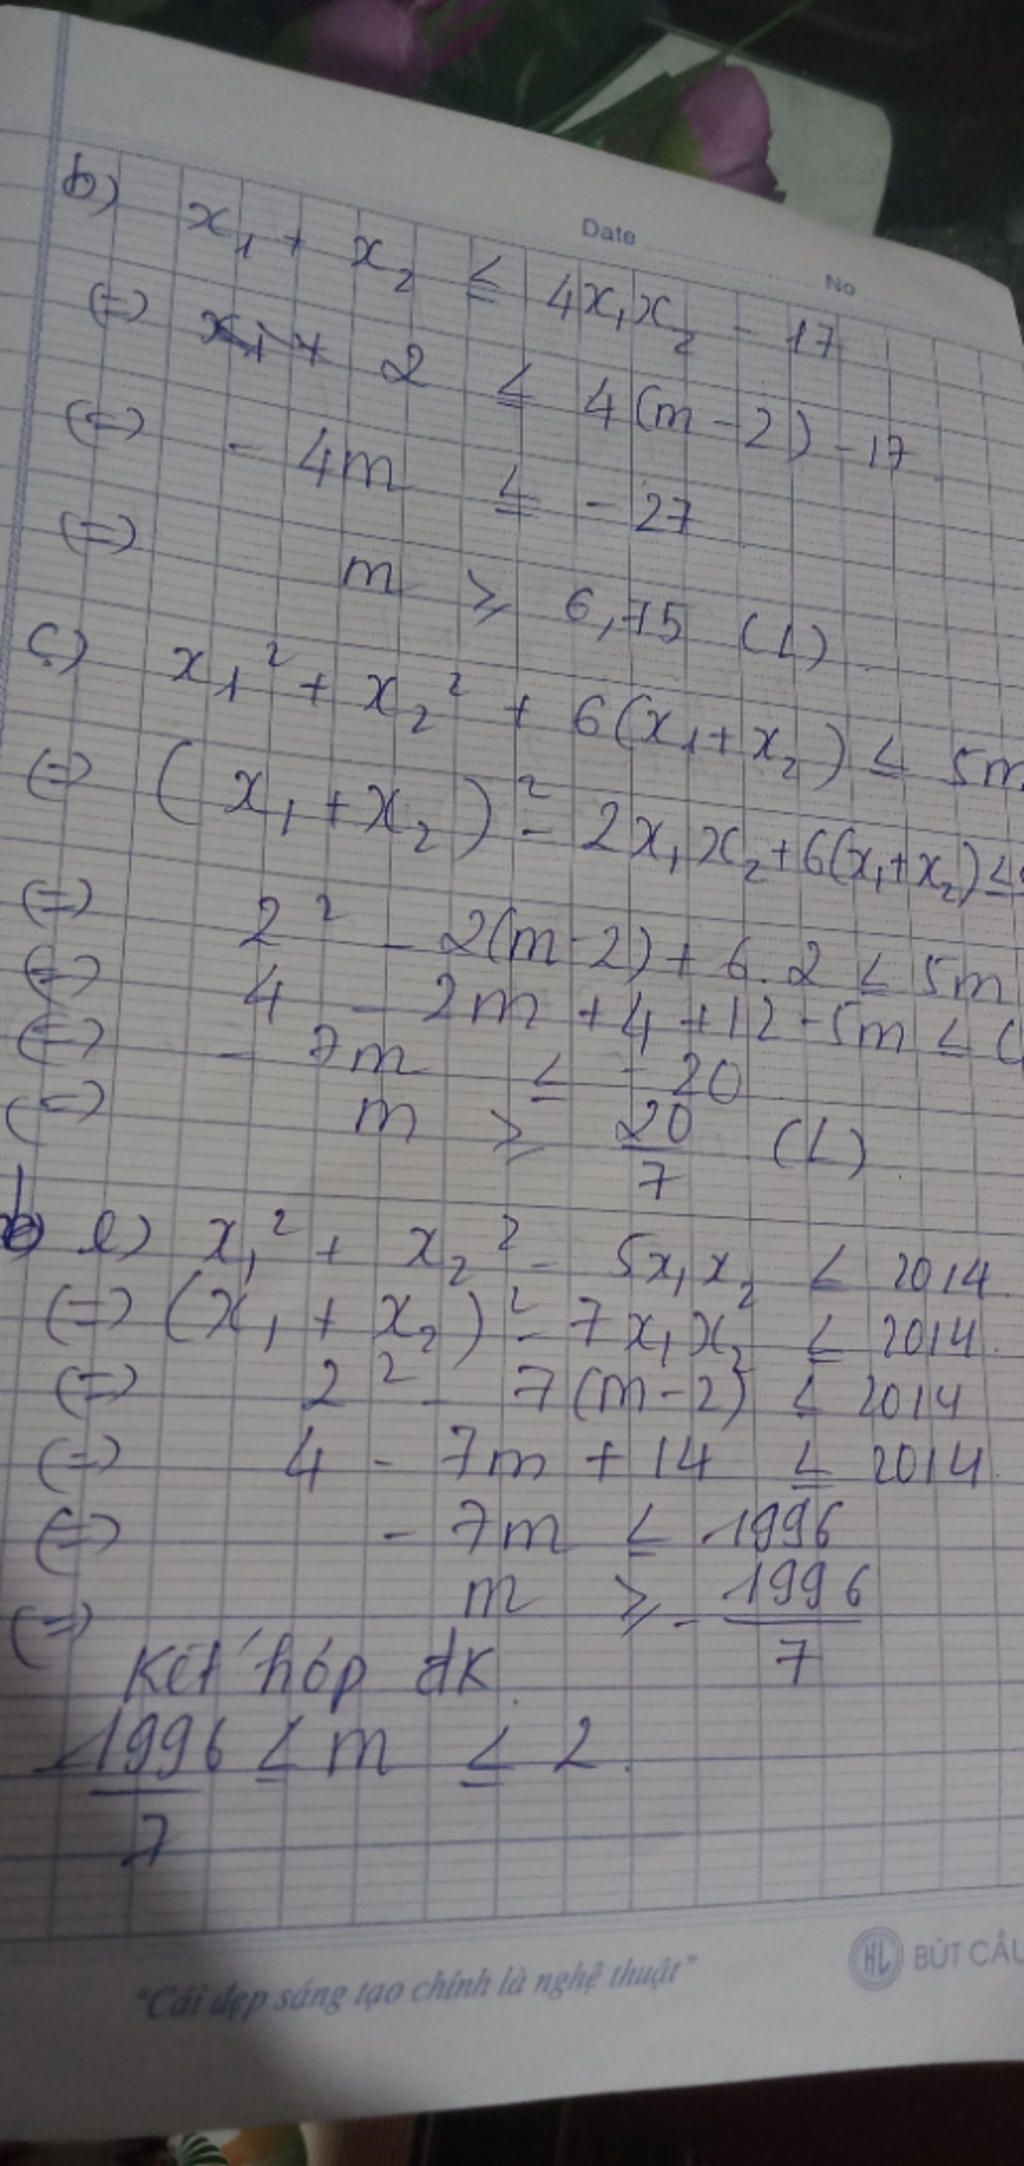 Date
No
b) x₁ + x₂ ≤ 4x₁x₂ - 17
(=) 2 ≤ 4(m-2) - 17
(=) - 4m ≤ - 27
(=) m ≥ 6,75 (L)
c) x₁² + x₂² + 6(x₁+x₂) ≤ 5m
(=) (x₁+x₂)² - 2x₁x₂+6(x₁+x₂) ≤
(=) 2² - 2(m-2) + 6.2 ≤ 5m
(=) 4 - 2m + 4 + 12 - 5m ≤ 0
(=) - 7m ≤ - 20
(=) m ≥ 20/7 (L)
e) x₁² + x₂² - 5x₁x₂ ≤ 2014
(=) (x₁ + x₂)² - 7x₁x₂ ≤ 2014
(=) 2² - 7(m-2) ≤ 2014
(=) 4 - 7m + 14 ≤ 2014
(=) - 7m ≤ 1996
(=) m ≥ - 1996/7
Kết hợp đk
-1996/7 ≤ m ≤ 2.
"Cái đẹp sáng tạo chính là nghệ thuật"
HL BÚT CẦU